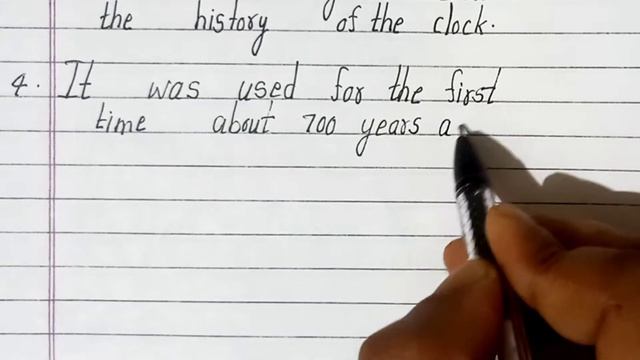 the history of the clock.
4. It was used for the first
time about 700 years a